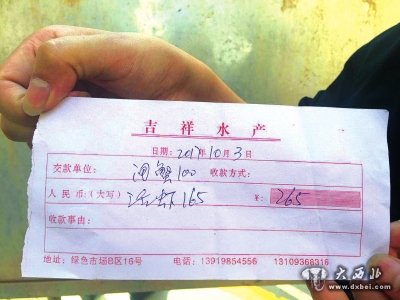 吉祥水产
日期:2017年10月3日
交款单位: 闸蟹100 收款方式:
人民币:(大写) 活虾165 ¥: 265
收款事由:
地址:绿色市场B区16号 电话:13919854556 13109368316
大西北
www.dxbei.com